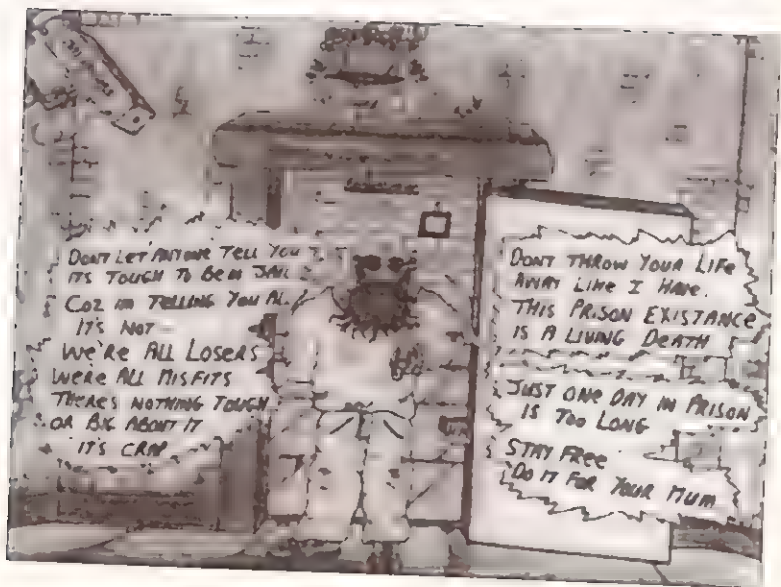 DONT LET ANYONE TELL YOU
ITS TOUGH TO BE IN JAIL
COZ IM TELLING YOU AL
IT'S NOT
WE'RE ALL LOSERS
WERE ALL MISFITS
THERES NOTHING TOUGH
OR BIG ABOUT IT
IT'S CRAP
DONT THROW YOUR LIFE
AWAY LIKE I HAVE.
THIS PRISON EXISTANCE
IS A LIVING DEATH
JUST ONE DAY IN PRISON
IS TOO LONG
STAY FREE
DO IT FOR YOUR MUM